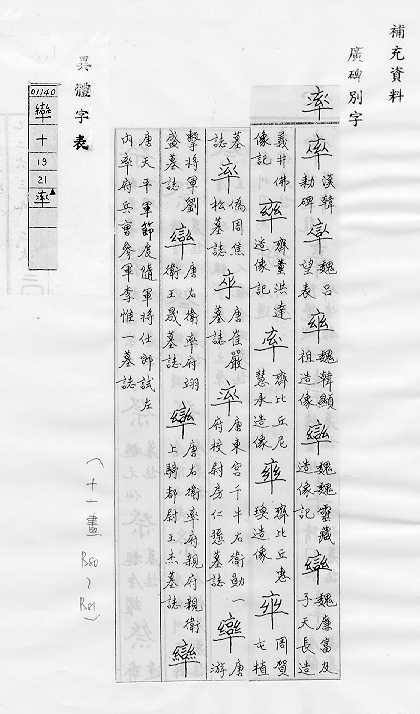 補充資料
廣碑別字
率
漢韓勅碑 魏呂望表 魏韓顯祖造像 魏魏靈藏造像記 魏廉富及子天長造
義井佛像記 齊董洪達造像記 齊比丘尼慧永造像 齊比丘惠瑛造像 周賀屯植
墓誌 僑周焦松墓誌 唐崔嚴墓誌 唐東宮千牛右衛勛一府校尉房仁慤墓誌 唐游
擊將軍劉盛墓誌 唐右衛率府翊衛王晟墓誌 唐右衛率府親府親衛上騎都尉王杰墓誌
唐天平軍節度隨軍將仕郎試左內率府兵曹參軍李惟一墓誌
異體字表
01140
十
19
21
率
(十一畫 R80、R81)